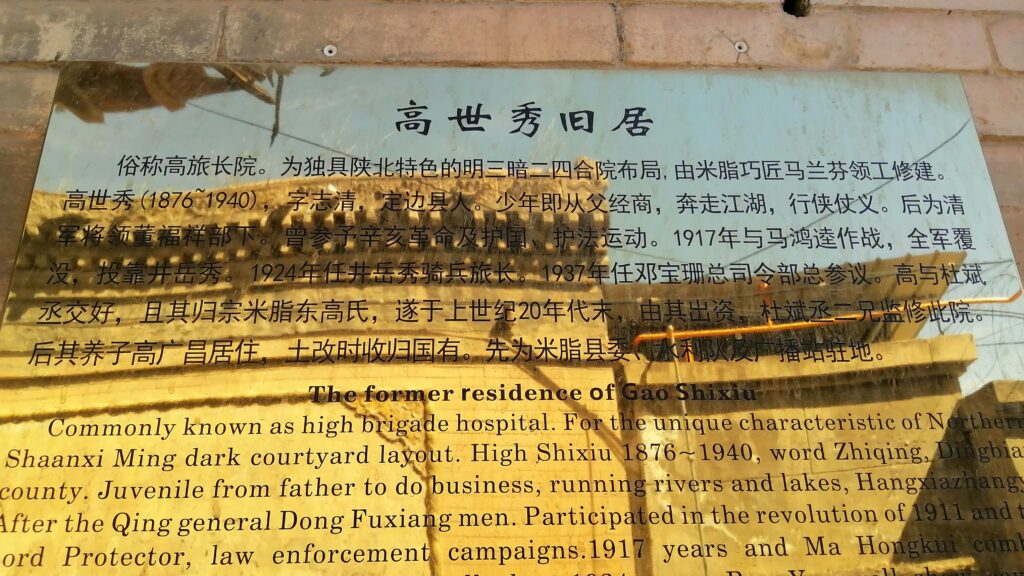 高世秀旧居
俗称高旅长院。为独具陕北特色的明三暗二四合院布局,由米脂巧匠马兰芬领工修建。
高世秀(1876~1940)，字志清，定边县人。少年即从父经商，奔走江湖，行侠仗义。后为清
军将领董福祥部下。曾参予辛亥革命及护国、护法运动。1917年与马鸿逵作战，全军覆
没，投靠井岳秀。1924年任井岳秀骑兵旅长。1937年任邓宝珊总司令部总参议。高与杜斌
丞交好，且其归宗米脂东高氏，遂于上世纪20年代末，由其出资，杜斌丞二兄监修此院。
后其养子高广昌居住，土改时收归国有。先为米脂县委、水利队及广播站驻地。
The former residence of Gao Shixiu
Commonly known as high brigade hospital. For the unique characteristic of Northern
Shaanxi Ming dark courtyard layout. High Shixiu 1876~1940, word Zhiqing, Dingbian
county. Juvenile from father to do business, running rivers and lakes, Hangxiazhangy
After the Qing general Dong Fuxiang men. Participated in the revolution of 1911 and t
ord Protector, law enforcement campaigns.1917 years and Ma Hongkui comb